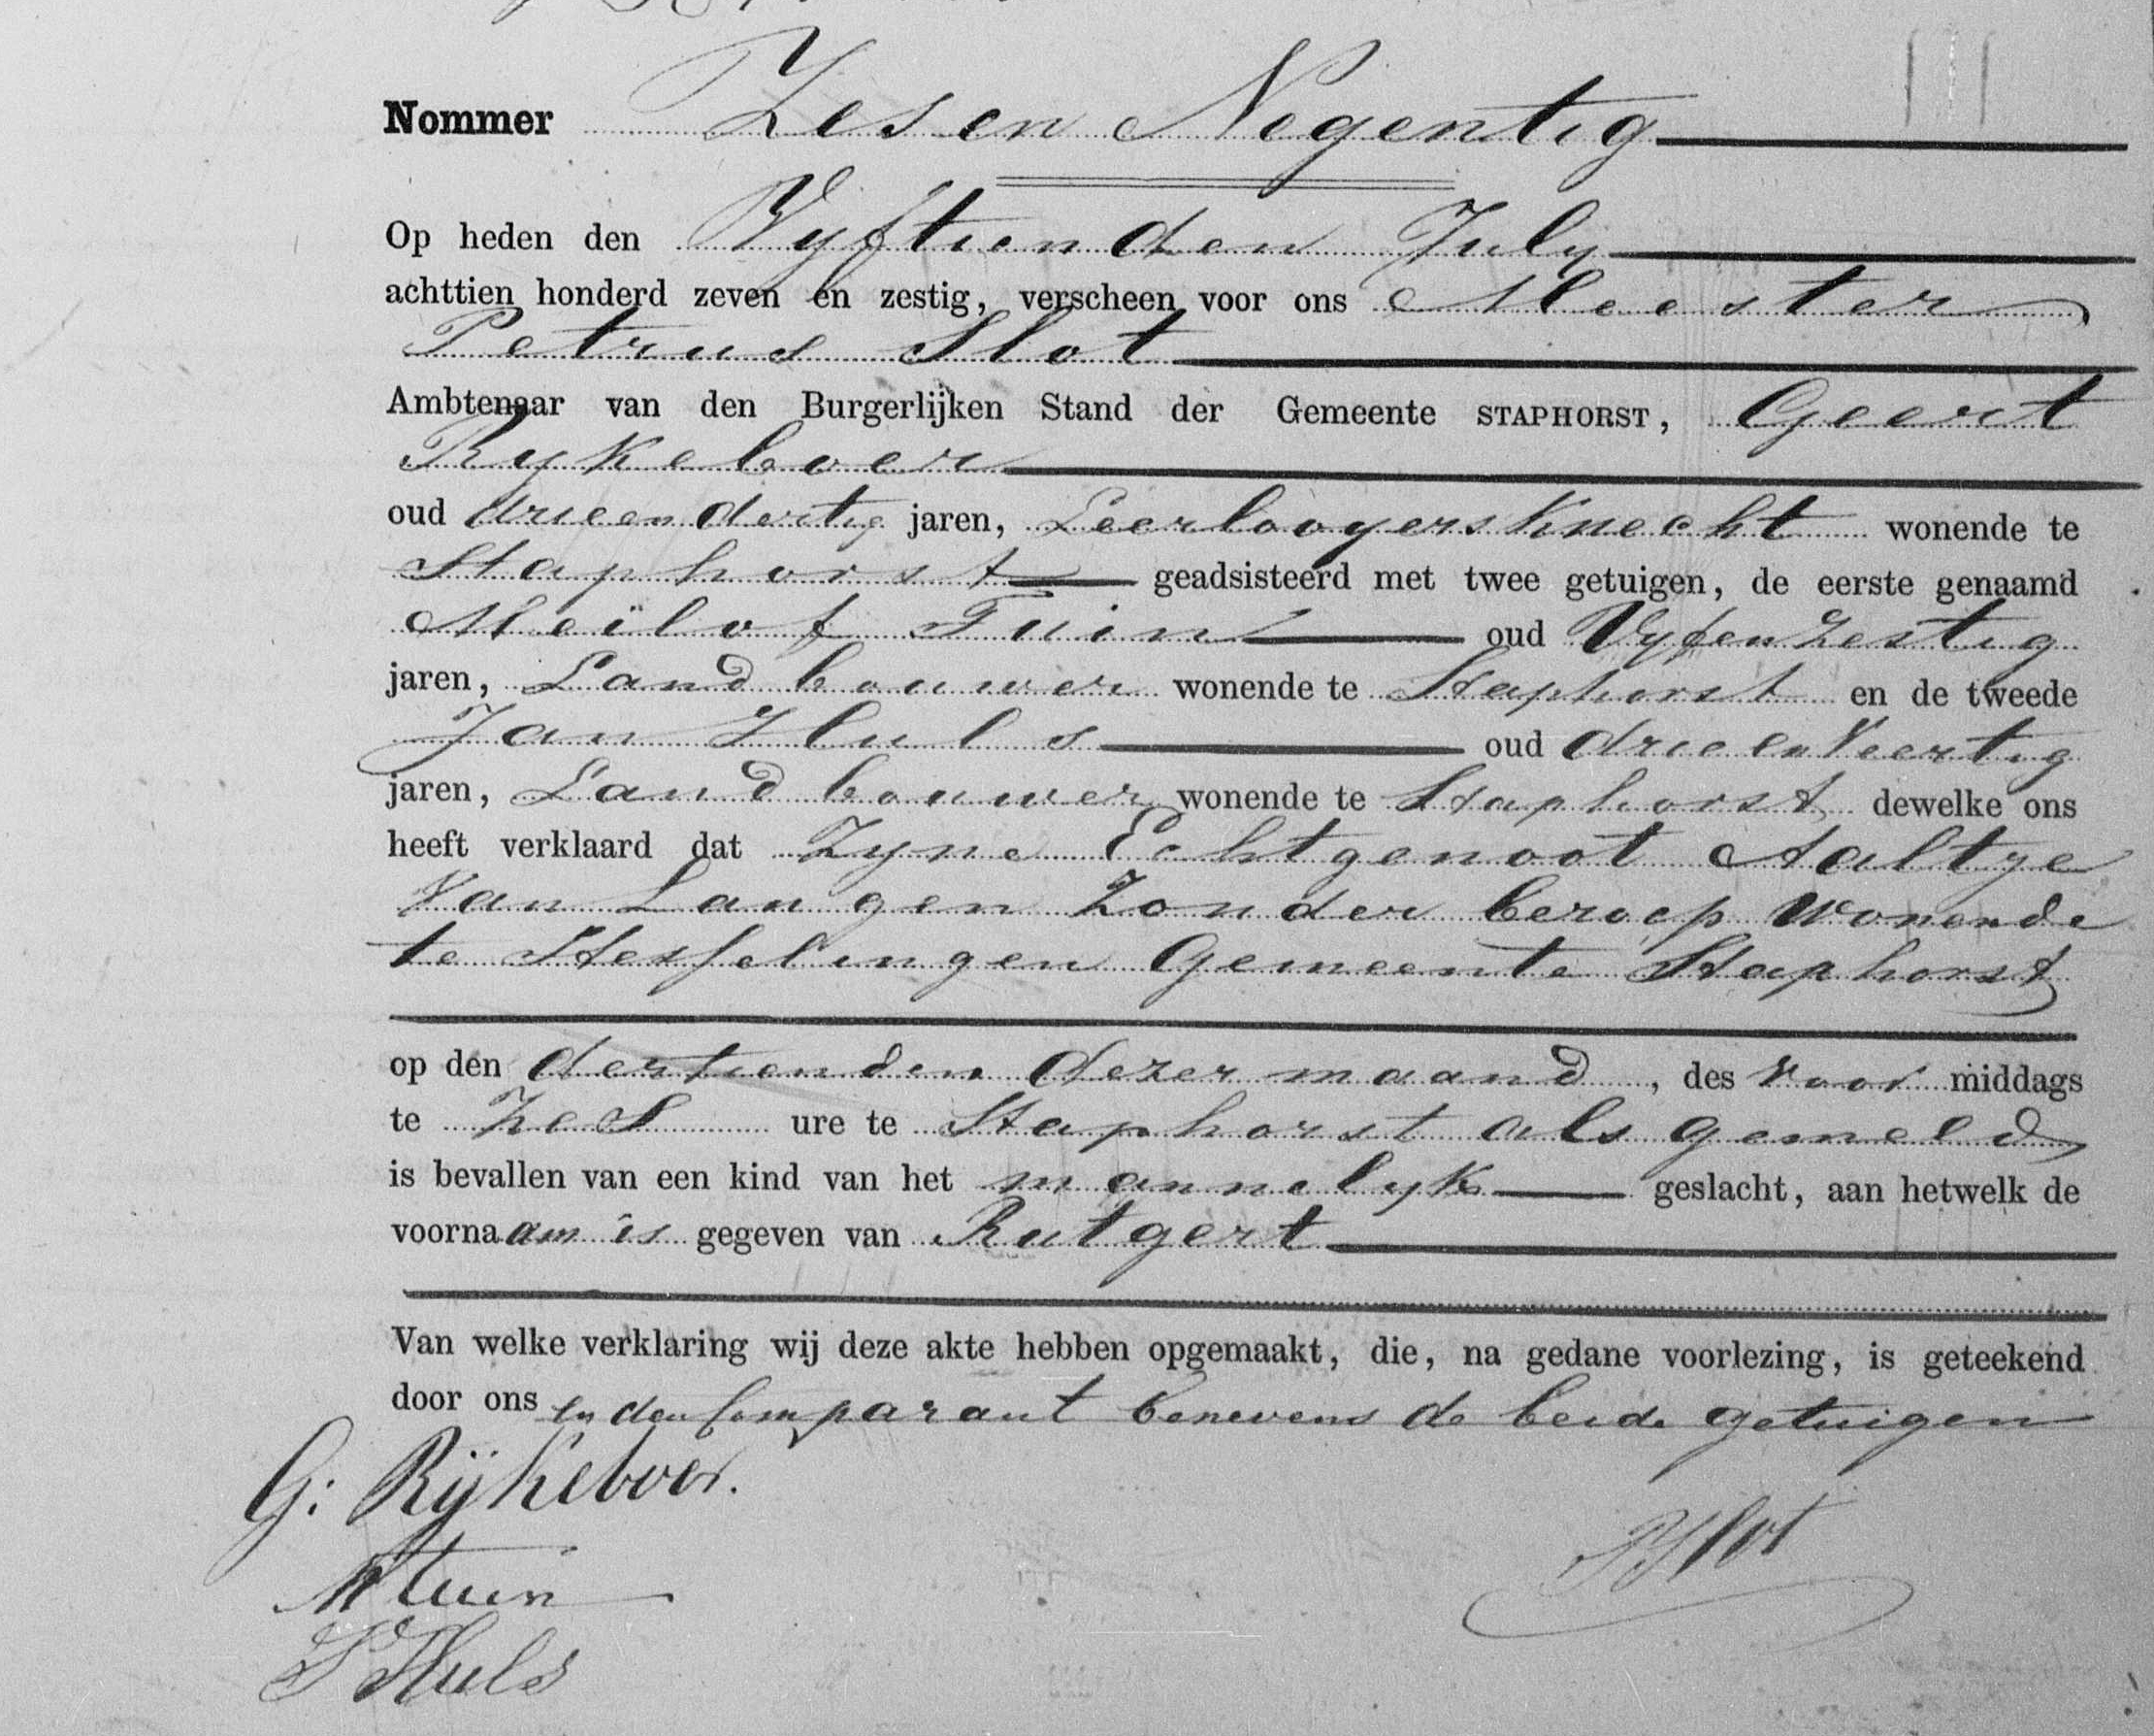 Nommer Zes en Negentig
Op heden den Vyftienden July
achttien honderd zeven en zestig, verscheen voor ons Meester
Petrus Slot
Ambtenaar van den Burgerlijken Stand der Gemeente STAPHORST, Geert
Rykeboer
oud drieendertig jaren, Leerlooyersknecht wonende te
Staphorst geadsisteerd met twee getuigen, de eerste genaamd
Meilof Tuin oud Vyfenzestig
jaren, Landbouwer wonende te Staphorst en de tweede
Jan Huls oud drieenveertig
jaren, Landbouwer wonende te Staphorst dewelke ons
heeft verklaard dat Zyne Echtgenoot Aaltje
van Langen Zonder beroep wonende
te Hesselingen Gemeente Staphorst
op den dertienden dezer maand, des voor middags
te zes ure te Staphorst als gemeld
is bevallen van een kind van het mannelyk geslacht, aan hetwelk de
voornaam is gegeven van Rutgert
Van welke verklaring wij deze akte hebben opgemaakt, die, na gedane voorlezing, is geteekend
door ons en den Comparant benevens de beide getuigen
G: Rijkeboer.
M Tuin
PSlot
J Huls